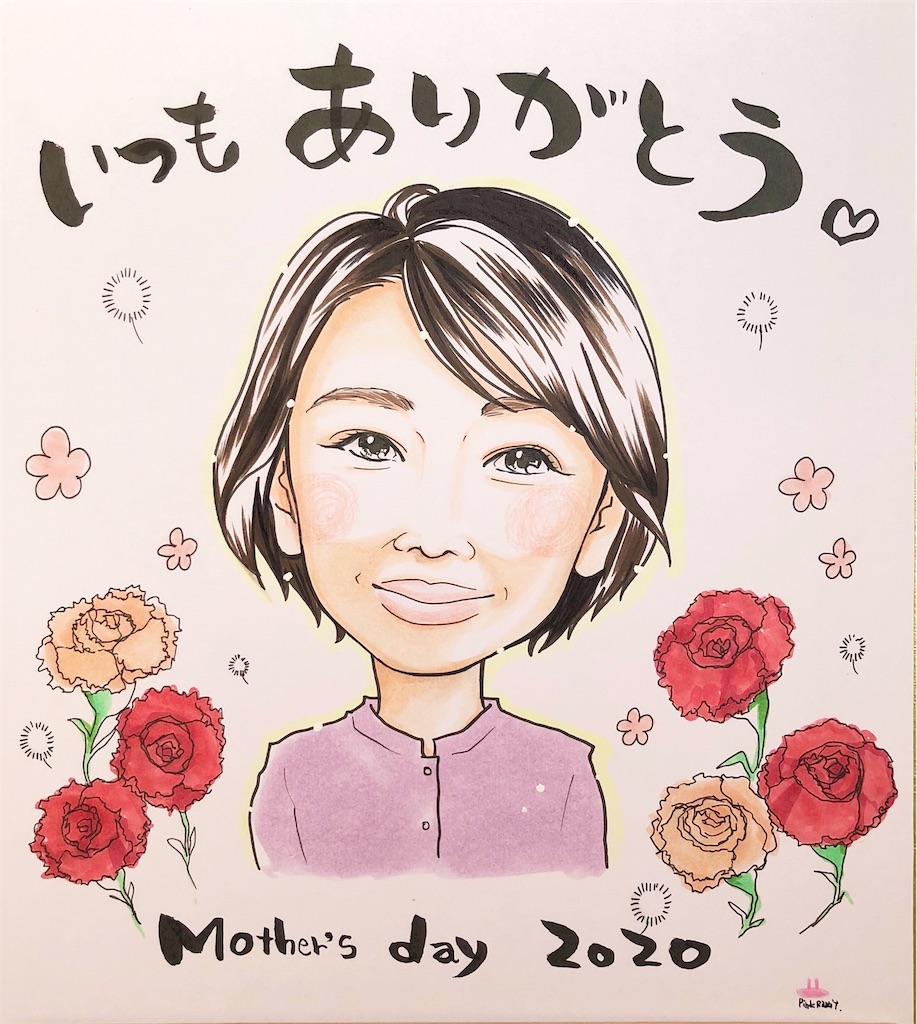 いつも ありがとう♡
Mother's day 2020